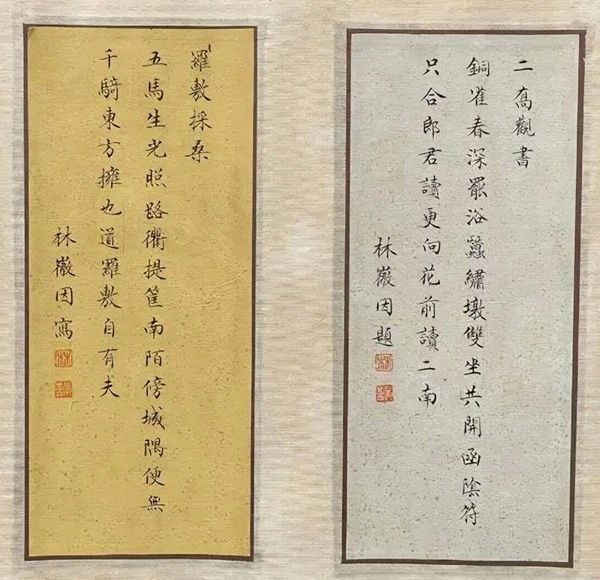 二喬觀書
銅雀春深罷浴蠶繡墩雙坐共開函陰符
只合郎君讀更向花前讀二南
林徽因題
羅敷採桑
五馬生光照路衢提筐南陌傍城隅便無
千騎東方擁也道羅敷自有夫
林徽因寫